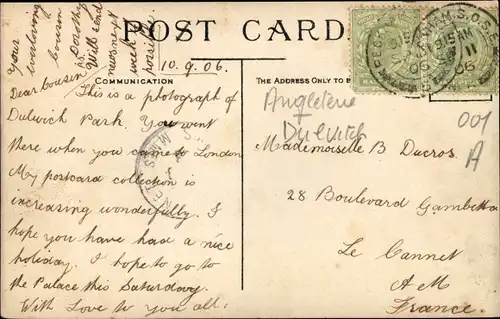 POST CARD
COMMUNICATION
THE ADDRESS ONLY TO B
10.9.06.
Dear Cousin
This is a photograph of
Dulwich Park. You went
there when you came to London
My postcard collection is
increasing wonderfully. I
hope you have had a nice
holiday. I hope to go to
the Palace this Saturday.
With Love to you all.
Your
everloving
Cousin
Dorothy
PS Will send
next
week
possible
Angleterre
Dulwich
001
A
Mademoiselle B Ducros.
28 Boulevard Gambetta
Le Cannet
A M
France.
PECKHAM. S.O. S.E.
9.15 AM
11
06